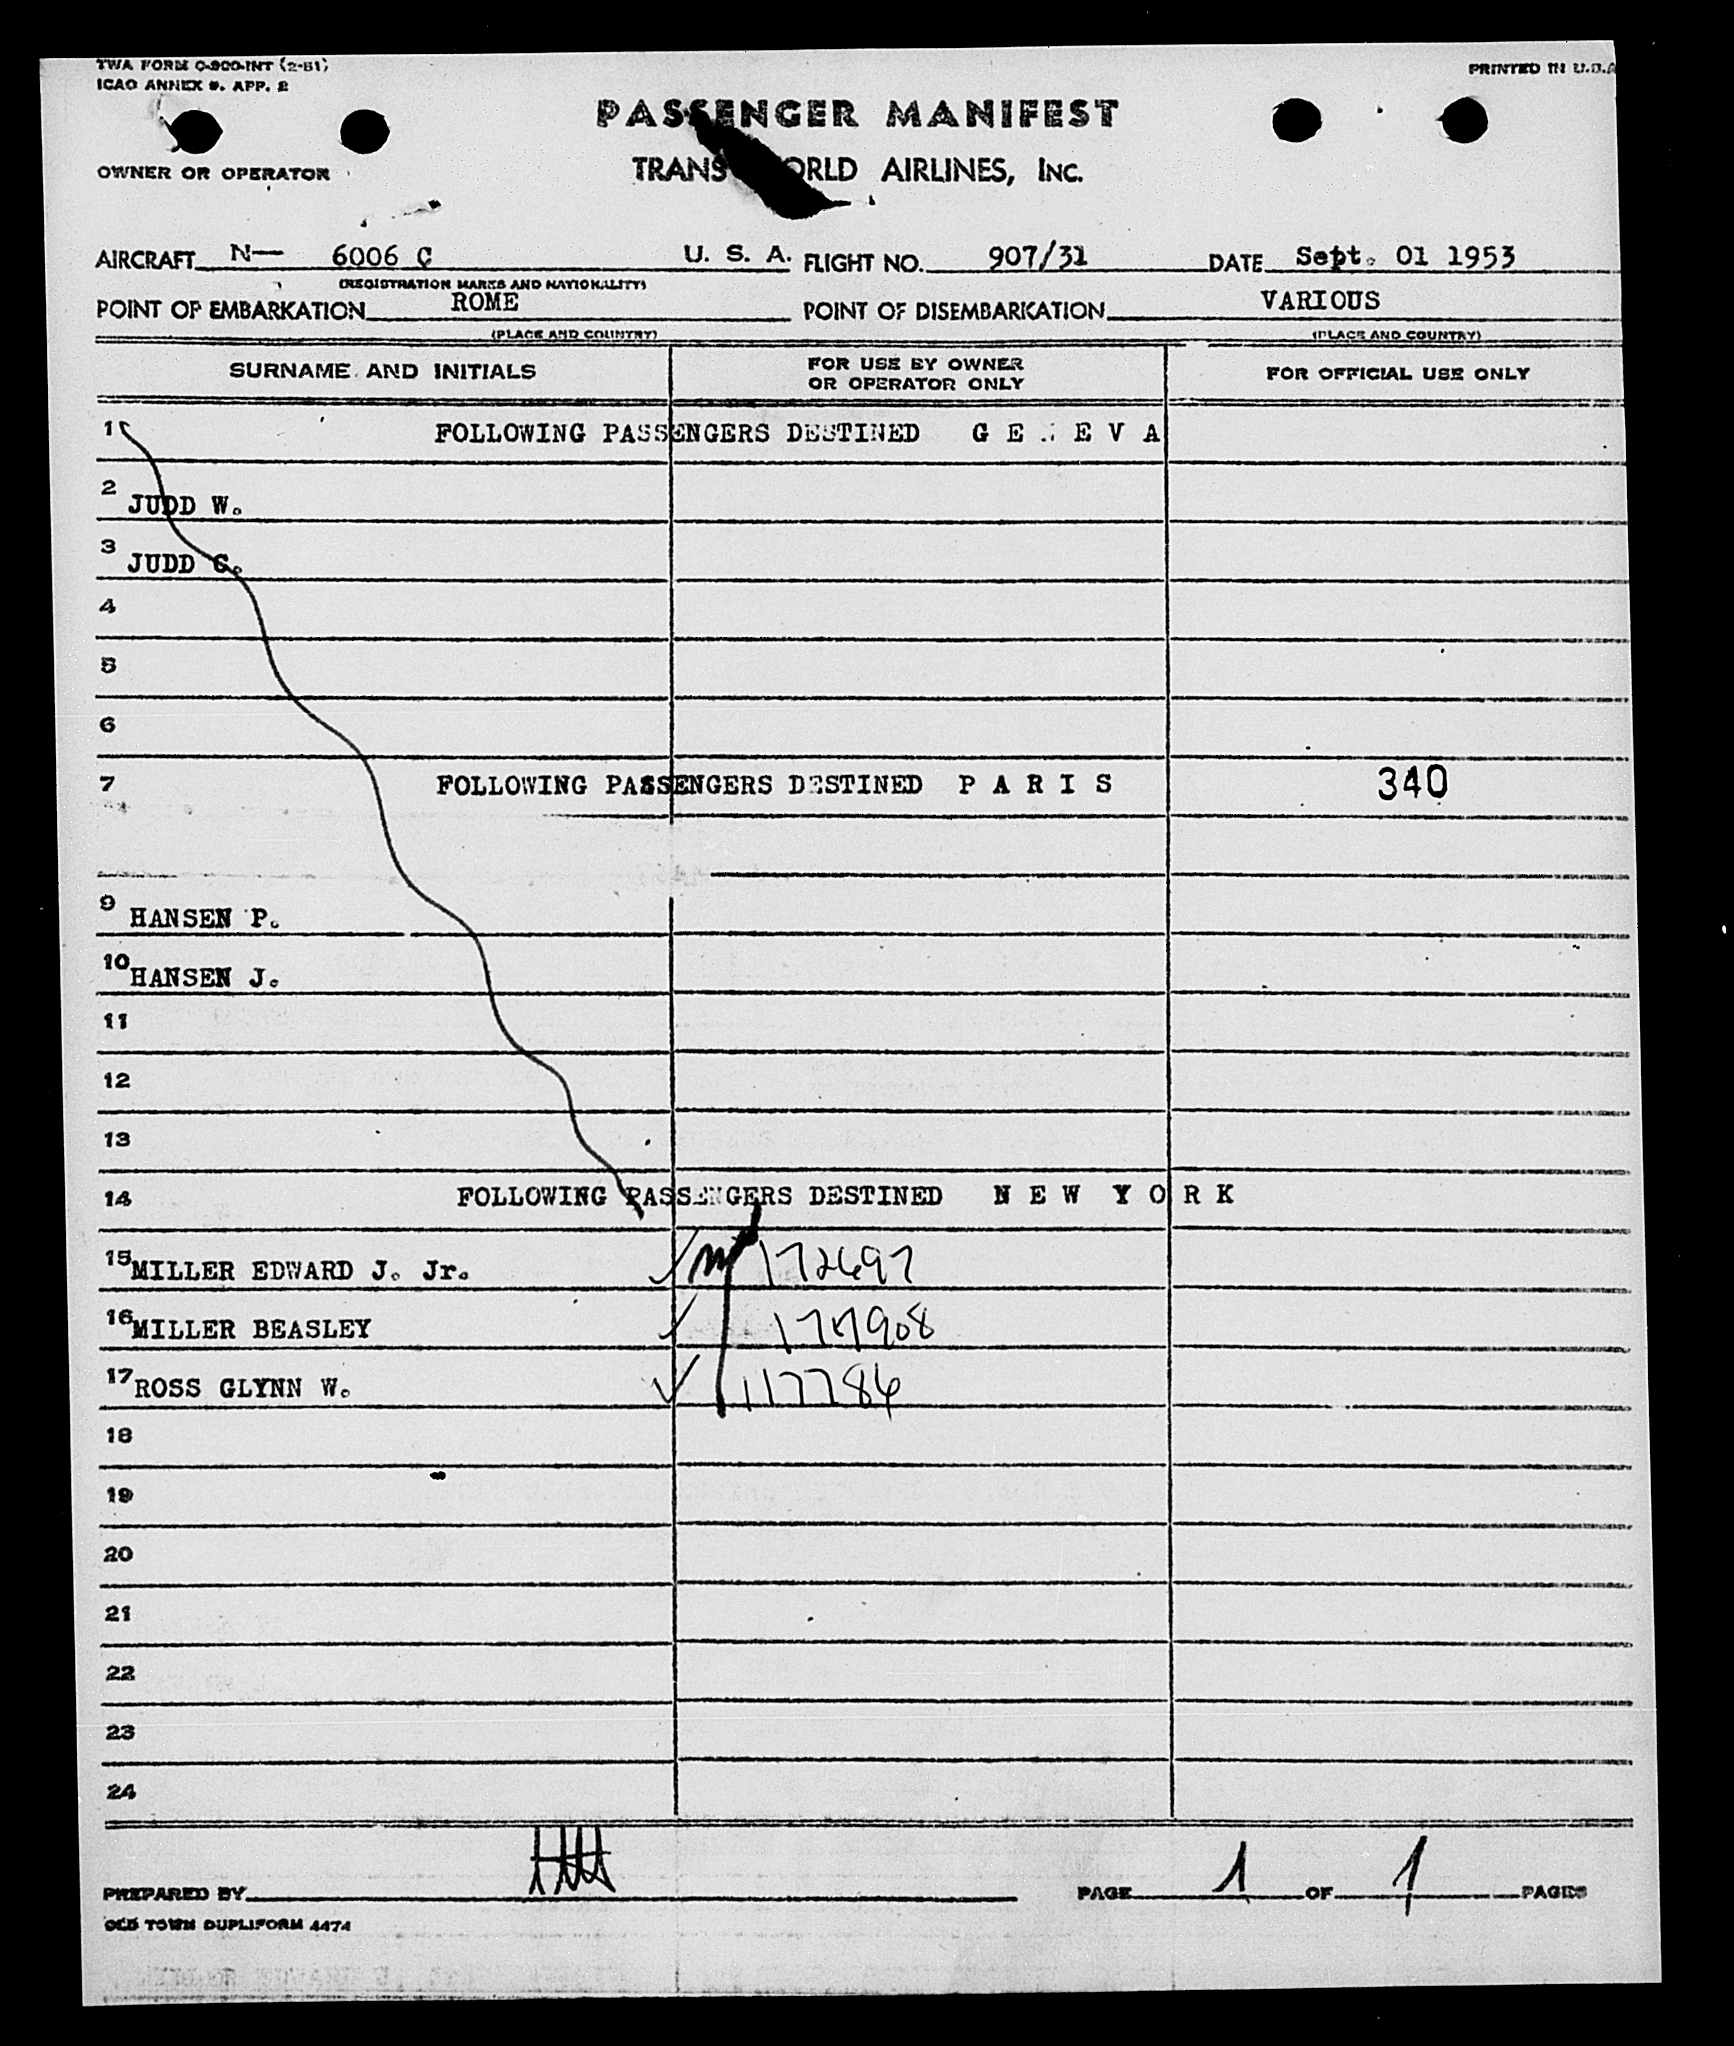 TWA FORM C-900-INT (2-51)
ICAO ANNEX 9. APP. 2
PRINTED IN U.S.A
PASSENGER MANIFEST
OWNER OR OPERATOR
TRANS WORLD AIRLINES, INC.
AIRCRAFT N— 6006 C U. S. A. FLIGHT NO. 907/31 DATE Sept. 01 1953
(REGISTRATION MARKS AND NATIONALITY)
POINT OF EMBARKATION ROME POINT OF DISEMBARKATION VARIOUS
(PLACE AND COUNTRY) (PLACE AND COUNTRY)
SURNAME AND INITIALS FOR USE BY OWNER OR OPERATOR ONLY FOR OFFICIAL USE ONLY
1 FOLLOWING PASSENGERS DESTINED G E N E V A
2 JUDD W.
3 JUDD C.
4
5
6
7 FOLLOWING PASSENGERS DESTINED P A R I S 340
9 HANSEN P.
10 HANSEN J.
11
12
13
14 FOLLOWING PASSENGERS DESTINED N E W Y O R K
15 MILLER EDWARD J. Jr. 172697
16 MILLER BEASLEY
17 ROSS GLYNN W. 117786
18
19
20
21
22
23
24
PREPARED BY PAGE 1 OF 1 PAGES
OLD TOWN DUPLIFORM 4474